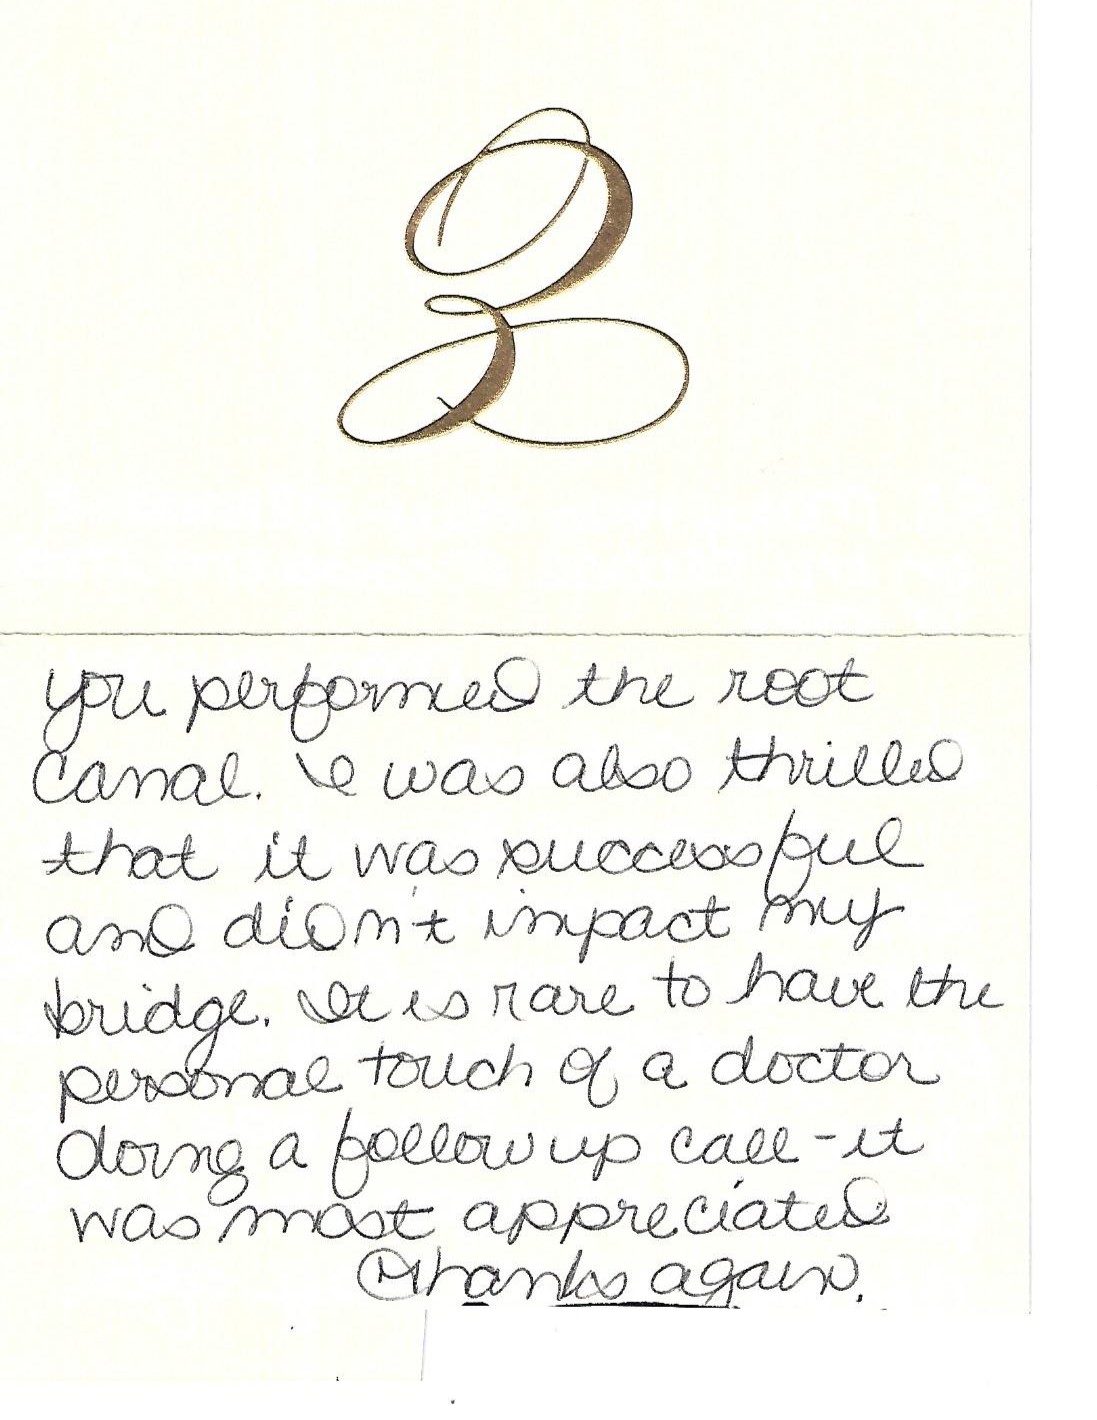 Z
you performed the root
canal. I was also thrilled
that it was successful
and didn't impact my
bridge. It is rare to have the
personal touch of a doctor
doing a follow up call - it
was most appreciated
Thanks again.